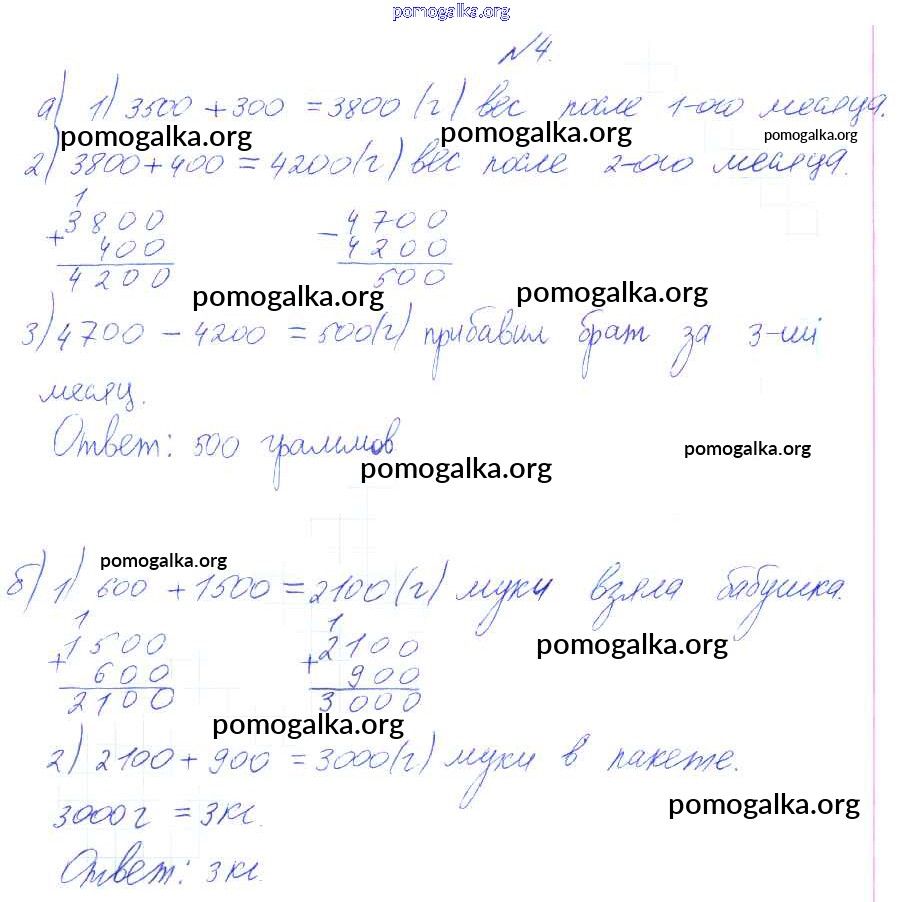 pomogalka.org
№4.
а) 1) 3500 + 300 = 3800 (г) вес после 1-ого месяца.
pomogalka.org pomogalka.org pomogalka.org
2) 3800 + 400 = 4200 (г) вес после 2-ого месяца.
1
3800 4700
+ 400 - 4200
4200 500
pomogalka.org pomogalka.org
3) 4700 - 4200 = 500 (г) прибавил брат за 3-ий
месяц.
Ответ: 500 граммов
pomogalka.org pomogalka.org
pomogalka.org
б) 1) 600 + 1500 = 2100 (г) муки взяла бабушка.
1 1
1500 2100
+ 600 + 900
2100 3000
pomogalka.org
pomogalka.org
2) 2100 + 900 = 3000 (г) муки в пакете.
3000 г = 3 кг.
pomogalka.org
Ответ: 3 кг.